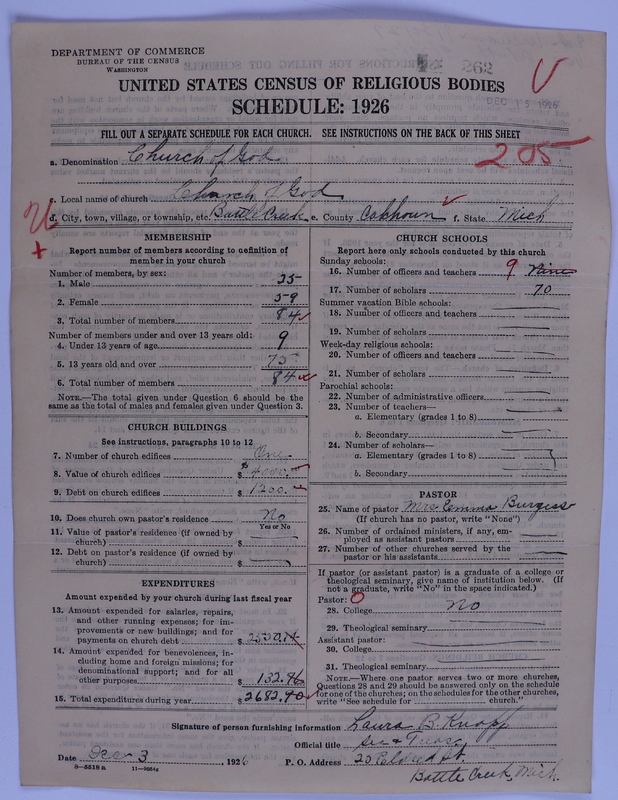 DEPARTMENT OF COMMERCE
BUREAU OF THE CENSUS
WASHINGTON
262
DEC 15 1926
UNITED STATES CENSUS OF RELIGIOUS BODIES
SCHEDULE: 1926
FILL OUT A SEPARATE SCHEDULE FOR EACH CHURCH. SEE INSTRUCTIONS ON THE BACK OF THIS SHEET
a. Denomination Church of God
205
c. Local name of church Church of God
d. City, town, village, or township, etc. Battle Creek e. County Calhoun f. State Mich
MEMBERSHIP
Report number of members according to definition of
member in your church
Number of members, by sex:
1. Male 25
2. Female 59
3. Total number of members 84
Number of members under and over 13 years old:
4. Under 13 years of age 9
5. 13 years old and over 75
6. Total number of members 84
NOTE.—The total given under Question 6 should be
same as the total of males and females given under Question 3.
CHURCH BUILDINGS
See instructions, paragraphs 10 to 12
7. Number of church edifices One
8. Value of church edifices $ 4000.
9. Debt on church edifices $ 1200.
10. Does church own pastor's residence No
Yes or No
11. Value of pastor's residence (if owned by
church) $
12. Debt on pastor's residence (if owned by
church) $
EXPENDITURES
Amount expended by your church during last fiscal year
13. Amount expended for salaries, repairs,
and other running expenses; for im-
provements or new buildings; and for
payments on church debt $
14. Amount expended for benevolences, in-
cluding home and foreign missions; for
denominational support; and for all
other purposes $ 132.46
15. Total expenditures during year $ 2682.40
CHURCH SCHOOLS
Report here only schools conducted by this church
Sunday schools:
16. Number of officers and teachers 9 Nine
17. Number of scholars 70
Summer vacation Bible schools:
18. Number of officers and teachers
19. Number of scholars
Week-day religious schools:
20. Number of officers and teachers
21. Number of scholars
Parochial schools:
22. Number of administrative officers
23. Number of teachers—
a. Elementary (grades 1 to 8)
b. Secondary
24. Number of scholars—
a. Elementary (grades 1 to 8)
b. Secondary
PASTOR
25. Name of pastor Mrs Emma Burgess
(If church has no pastor, write "None")
26. Number of ordained ministers, if any, em-
ployed as assistant pastors
27. Number of other churches served by the
pastor or his assistants
If pastor (or assistant pastor) is a graduate of a college or
theological seminary, give name of institution below. (If
not a graduate, write "No" in the space indicated.)
Pastor: 0
28. College No
29. Theological seminary
Assistant pastor:
30. College
31. Theological seminary
NOTE.—Where one pastor serves two or more churches,
Questions 28 and 29 should be answered only on the schedule
for one of the churches; on the schedules for the other churches,
write "See schedule for church."
Signature of person furnishing information Laura B. Knapp
Official title Sec & Treas
Date Dec 3 1926 P. O. Address 20 St.
8-5518 a 11-9264g
Battle Creek, Mich.